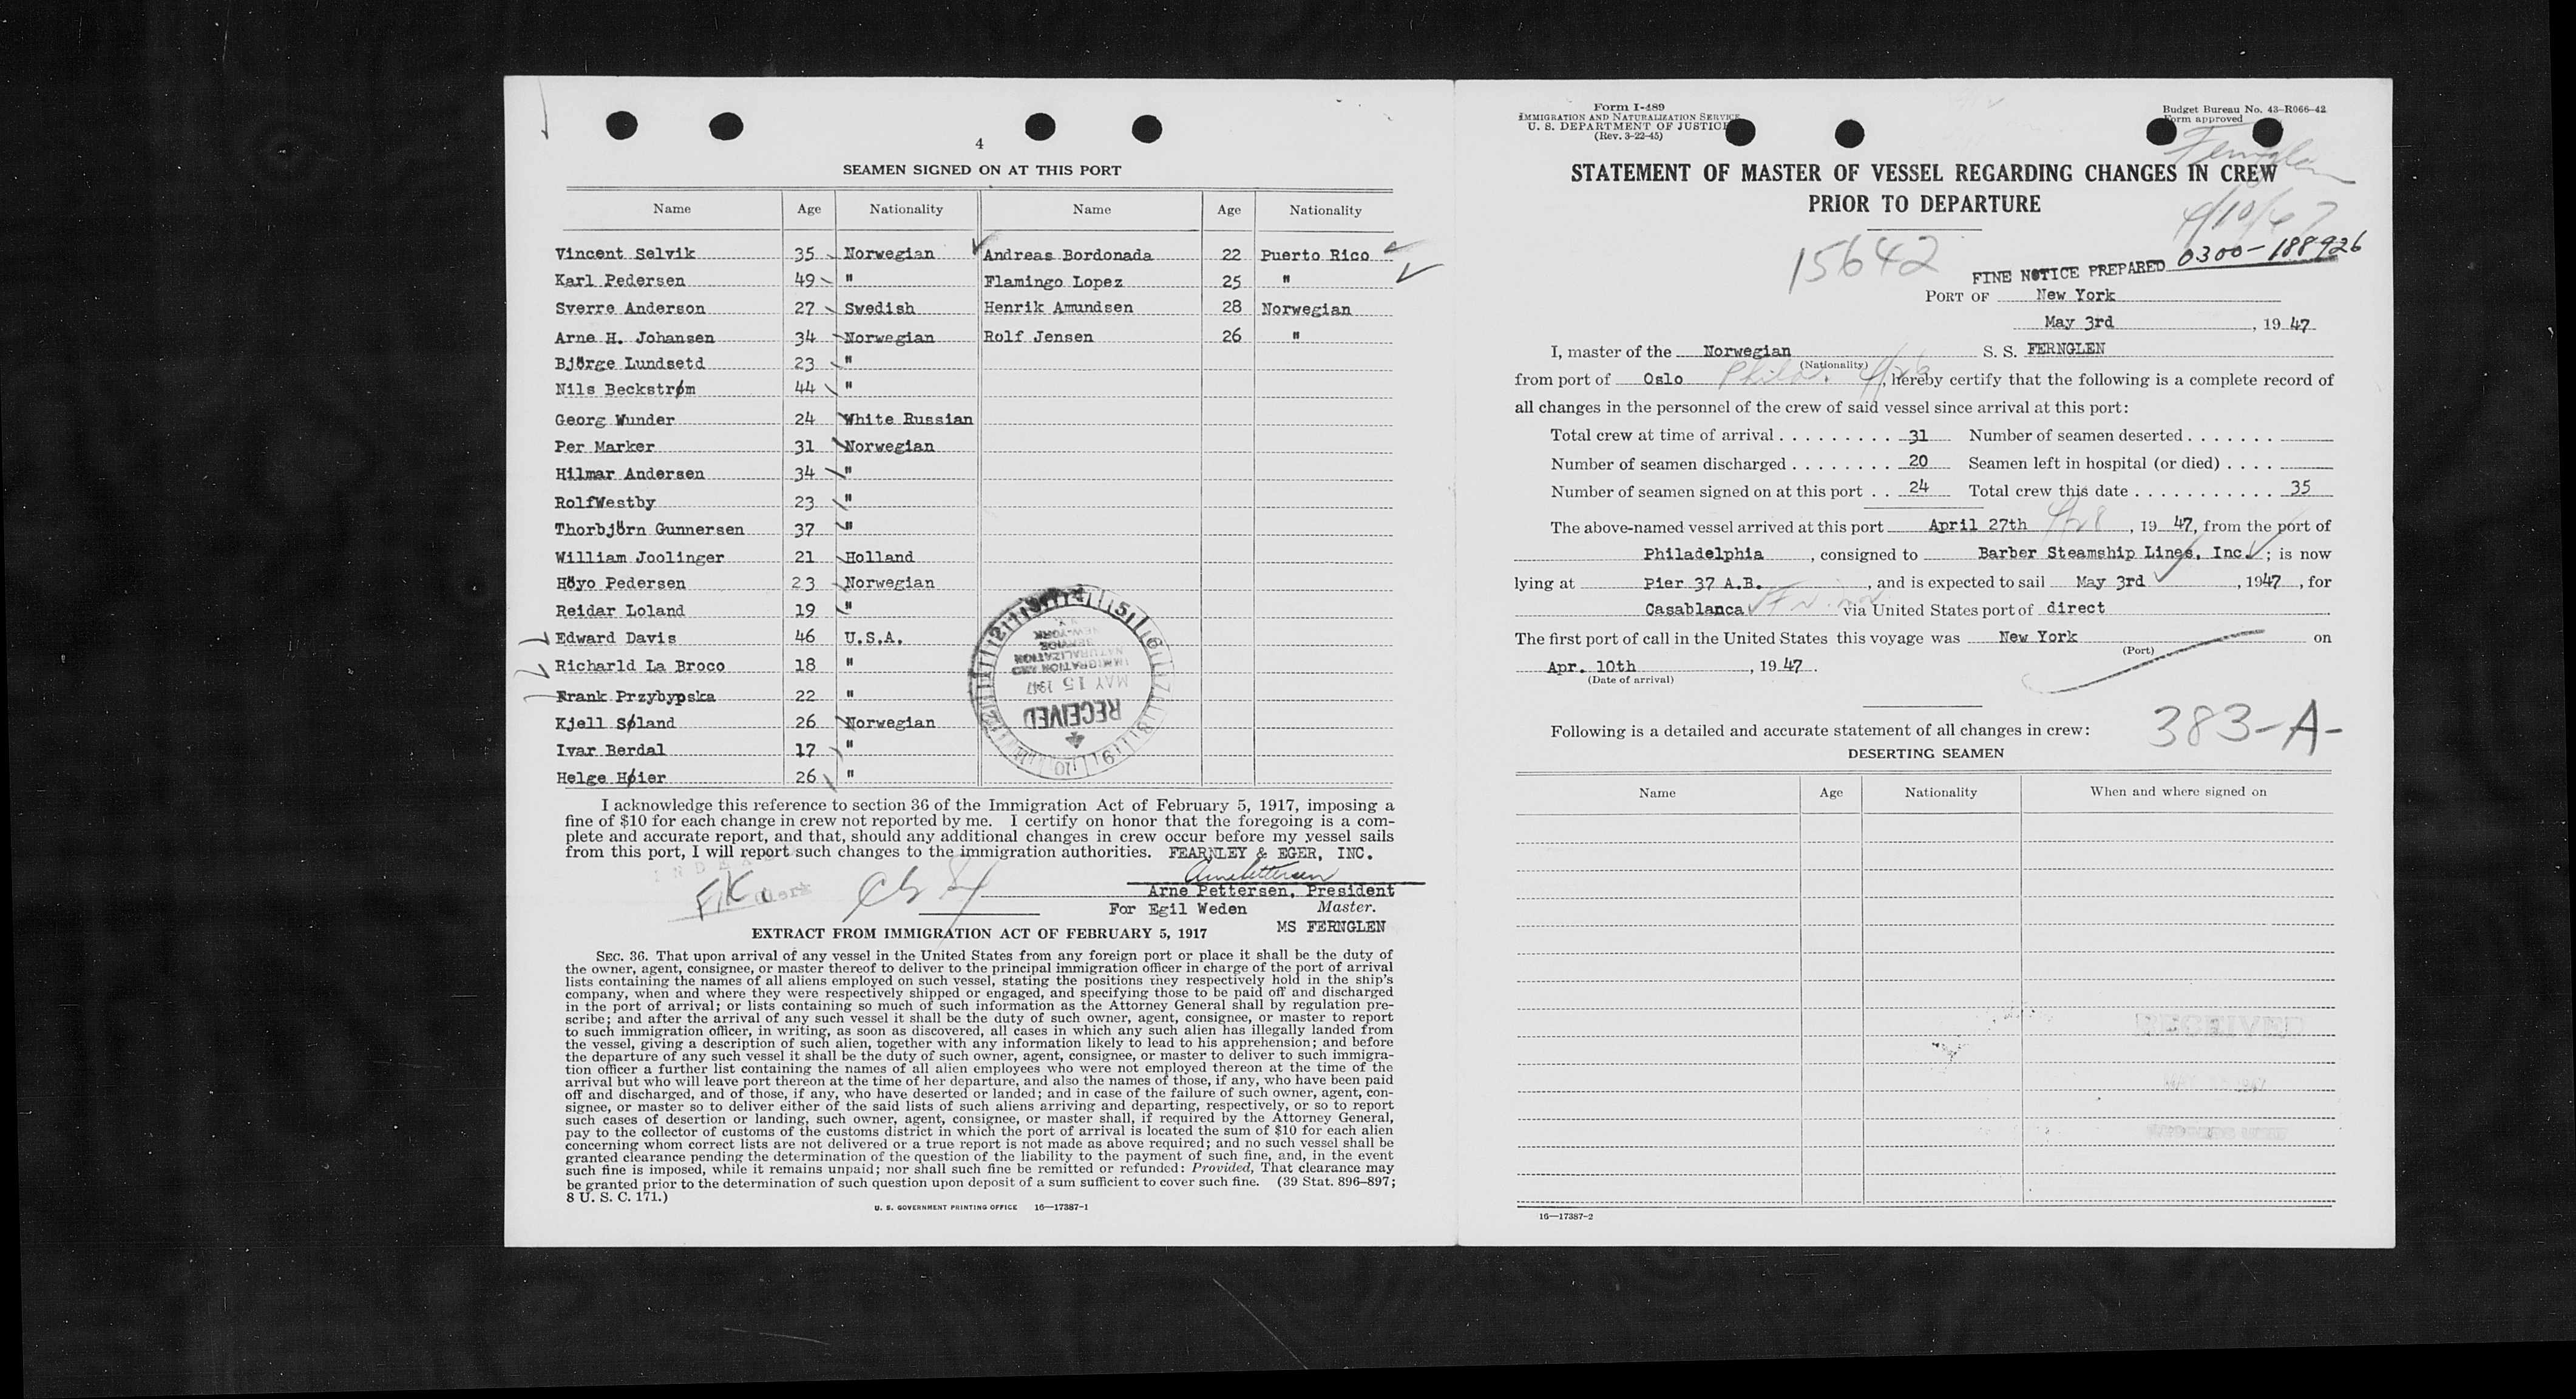 4
SEAMEN SIGNED ON AT THIS PORT
Name Age Nationality Name Age Nationality
Vincent Selvik 35 Norwegian Andreas Bordonada 22 Puerto Rico
Karl Pedersen 49 " Flamingo Lopez 25 "
Sverre Anderson 27 Swedish Henrik Amundsen 28 Norwegian
Arne H. Johansen 34 Norwegian Rolf Jensen 26 "
Björge Lundsetd 23 "
Nils Beckstrøm 44 "
Georg Wunder 24 White Russian
Per Marker 31 Norwegian
Hilmar Andersen 34 "
RolfWestby 23 "
Thorbjörn Gunnersen 37 "
William Joolinger 21 Holland
Höyo Pedersen 23 Norwegian
Reidar Loland 19 "
Edward Davis 46 U.S.A.
Richarld La Broco 18 "
Frank Przybypska 22 "
Kjell Søland 26 Norwegian
Ivar Berdal 17 "
Helge Høier 26 "
IMMIGRATION AND
NATURALIZATION
SERVICE
NEW YORK
MAY 15 1947
RECEIVED
I acknowledge this reference to section 36 of the Immigration Act of February 5, 1917, imposing a
fine of $10 for each change in crew not reported by me. I certify on honor that the foregoing is a com-
plete and accurate report, and that, should any additional changes in crew occur before my vessel sails
from this port, I will report such changes to the immigration authorities. FEARNLEY & EGER, INC.
INDEXED
FK Clerk
Arne Pettersen
Arne Pettersen, President
For Egil Weden Master.
MS FERNGLEN
EXTRACT FROM IMMIGRATION ACT OF FEBRUARY 5, 1917
SEC. 36. That upon arrival of any vessel in the United States from any foreign port or place it shall be the duty of
the owner, agent, consignee, or master thereof to deliver to the principal immigration officer in charge of the port of arrival
lists containing the names of all aliens employed on such vessel, stating the positions they respectively hold in the ship's
company, when and where they were respectively shipped or engaged, and specifying those to be paid off and discharged
in the port of arrival; or lists containing so much of such information as the Attorney General shall by regulation pre-
scribe; and after the arrival of any such vessel it shall be the duty of such owner, agent, consignee, or master to report
to such immigration officer, in writing, as soon as discovered, all cases in which any such alien has illegally landed from
the vessel, giving a description of such alien, together with any information likely to lead to his apprehension; and before
the departure of any such vessel it shall be the duty of such owner, agent, consignee, or master to deliver to such immigra-
tion officer a further list containing the names of all alien employees who were not employed thereon at the time of the
arrival but who will leave port thereon at the time of her departure, and also the names of those, if any, who have been paid
off and discharged, and of those, if any, who have deserted or landed; and in case of the failure of such owner, agent, con-
signee, or master so to deliver either of the said lists of such aliens arriving and departing, respectively, or so to report
such cases of desertion or landing, such owner, agent, consignee, or master shall, if required by the Attorney General,
pay to the collector of customs of the customs district in which the port of arrival is located the sum of $10 for each alien
concerning whom correct lists are not delivered or a true report is not made as above required; and no such vessel shall be
granted clearance pending the determination of the question of the liability to the payment of such fine, and, in the event
such fine is imposed, while it remains unpaid; nor shall such fine be remitted or refunded: Provided, That clearance may
be granted prior to the determination of such question upon deposit of a sum sufficient to cover such fine. (39 Stat. 896–897;
8 U. S. C. 171.)
U. S. GOVERNMENT PRINTING OFFICE 16—17387-1
Form I-489
IMMIGRATION AND NATURALIZATION SERVICE
U. S. DEPARTMENT OF JUSTICE
(Rev. 3-22-45)
Budget Bureau No. 43-R066-42
Form approved
Fernglen
STATEMENT OF MASTER OF VESSEL REGARDING CHANGES IN CREW
PRIOR TO DEPARTURE
4/10/47
15642
FINE NOTICE PREPARED 0300-188926
PORT OF New York
May 3rd, 1947
I, master of the Norwegian S. S. FERNGLEN
(Nationality)
from port of Oslo Phila. 4/26, hereby certify that the following is a complete record of
all changes in the personnel of the crew of said vessel since arrival at this port:
Total crew at time of arrival . . . . . . . . . 31 Number of seamen deserted . . . . . . .
Number of seamen discharged . . . . . . . . 20 Seamen left in hospital (or died) . . . .
Number of seamen signed on at this port . . 24 Total crew this date . . . . . . . . . . . 35
The above-named vessel arrived at this port April 27th 4/28, 1947, from the port of
Philadelphia, consigned to Barber Steamship Lines, Inc.; is now
lying at Pier 37 A.B., and is expected to sail May 3rd, 1947, for
Casablanca via United States port of direct
The first port of call in the United States this voyage was New York on
(Port)
Apr. 10th, 1947.
(Date of arrival)
383-A-
Following is a detailed and accurate statement of all changes in crew:
DESERTING SEAMEN
Name Age Nationality When and where signed on
RECEIVED
16—17387-2